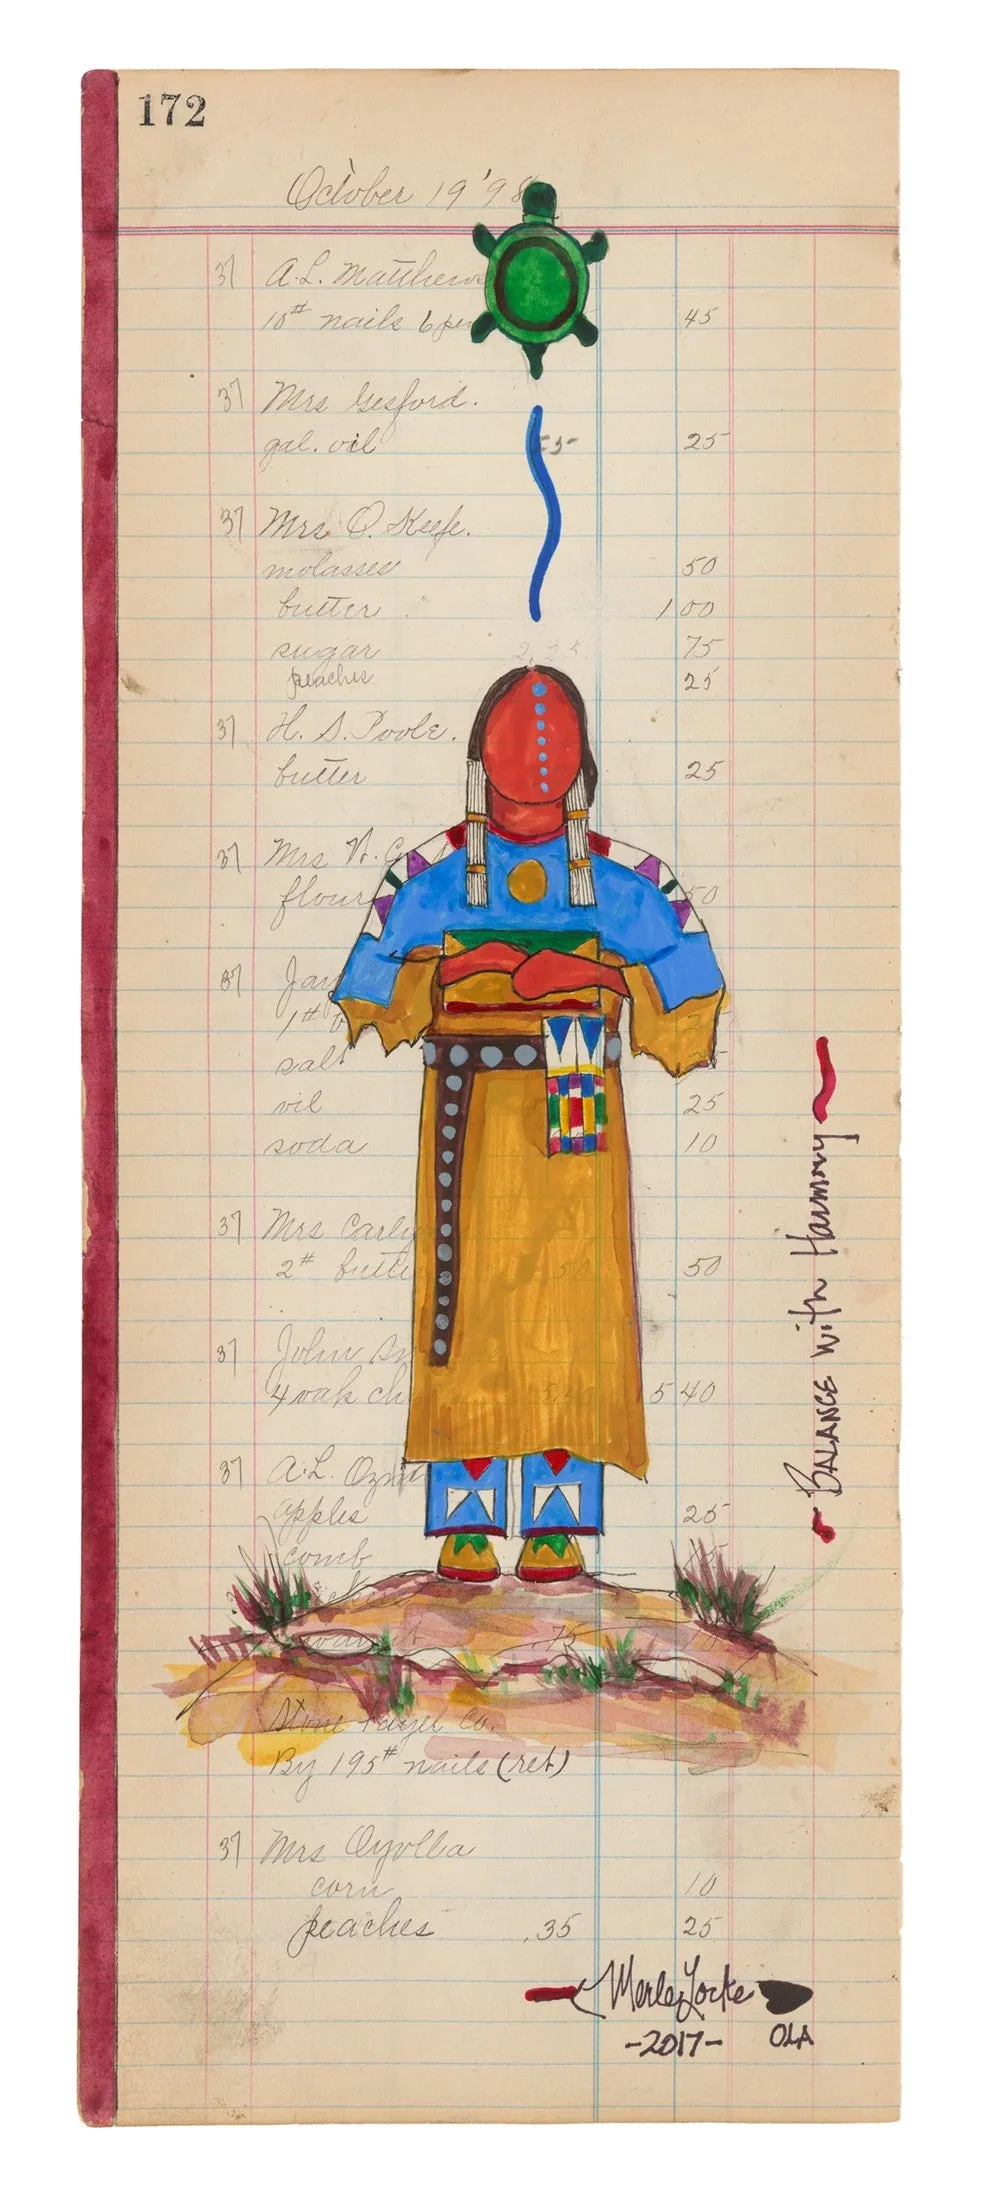 172
October 19 '98
37 A. L. Matthews
10# nails 6 pen 45
37 Mrs Gesford.
gal. oil 25 25
37 Mrs O. Keefe.
molasses 50
butter 1 00
sugar 2.25 75
peaches 25
37 H. S. Poole.
butter 25
37 Mrs
flour 50
37
1#
salt
oil 25
soda 10
37 Mrs
2# butter 50 50
37 John
4 oak 5.40 5 40
37 A. L.
apples 25
comb
.75 10
Stone Co.
By 195# nails (ret)
37 Mrs
corn 10
peaches .35 25
BALANCE with Harmony
Merle Locke
-2017- OLA